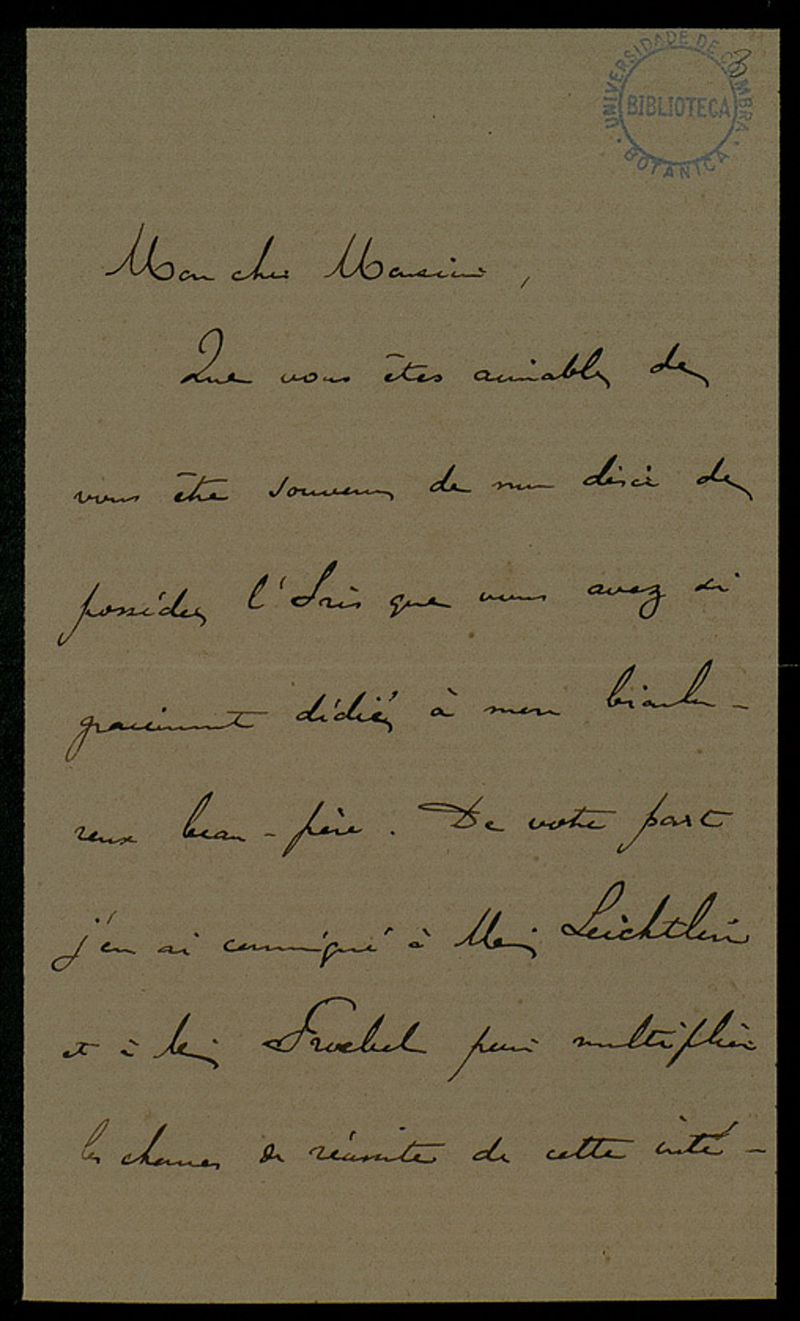 UNIVERSIDADE DE COIMBRA
BIBLIOTECA
BOTANICA
3
Mon cher Monsieur,
Que vous êtes aimable de
vous être souvenu de mon désir de
posséder l'Iris que vous avez si
gracieusement dédiée à mon bienheu-
reux beau-père. De votre part
j'en ai communiqué à Leichtlin
et à Froebel pour multiplier
les chances de réussite de cette inté-